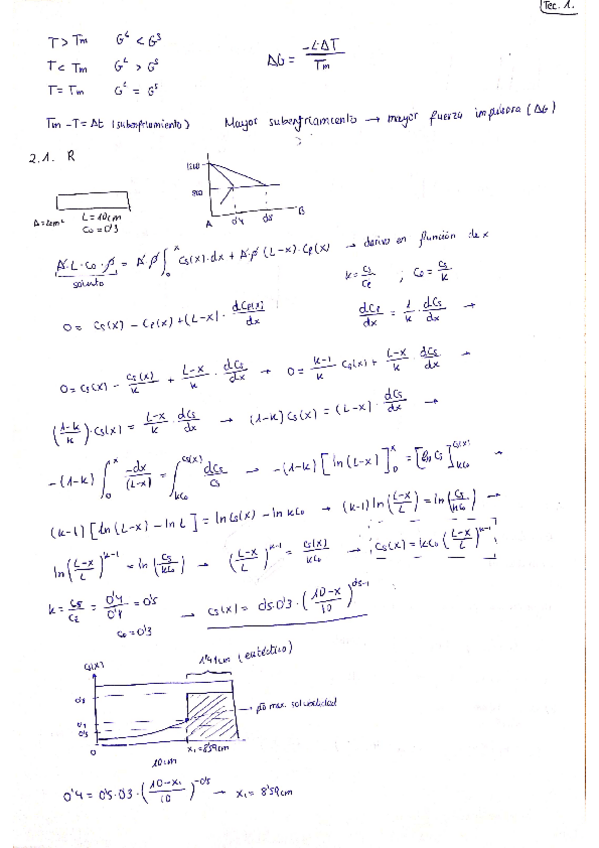 Tec. 1.
T > Tm G^L < G^S
T < Tm G^L > G^S
T = Tm G^L = G^S
ΔG = -L·ΔT / Tm
Tm - T = Δt (subenfriamiento) Mayor subenfriamiento → mayor fuerza impulsora (ΔG)
2.1. R
L = 10cm
C₀ = 0'3
A B
0'4
A·L·C₀·ρ = A·ρ ∫₀ˣ Cs(x)·dx + A·ρ (L-x)·Cl(x) → derivo en función de x
soluto
k = Cs/Cl
0 = Cs(x) - Cl(x) + (L-x)· dCl(x)/dx dCl/dx = 1/k · dCs/dx →
0 = Cs(x) - Cs(x)/k + (L-x)/k · dCs/dx → 0 = (k-1)/k Cs(x) + (L-x)/k · dCs/dx →
((1-k)/k)·Cs(x) = (L-x)/k · dCs/dx → (1-k) Cs(x) = (L-x)· dCs/dx →
-(1-k) ∫₀ˣ -dx/(L-x) = ∫_{kC₀}^{Cs(x)} dCs/Cs → -(1-k) [ln(L-x)]₀ˣ = [ln Cs]_{kC₀}^{Cs(x)} →
(k-1) [ln(L-x) - ln L] = ln Cs(x) - ln kC₀ → (k-1) ln((L-x)/L) = ln(Cs/kC₀) →
ln((L-x)/L)^{k-1} = ln(Cs/kC₀) → ((L-x)/L)^{k-1} = Cs(x)/kC₀ → Cs(x) = kC₀ ((L-x)/L)^{k-1}
C₀ = 0'3
→ Cs(x) = 0'5·0'3·((10-x)/10)^{0'5-1}
1'41cm (eutéctico)
Cs(x)
max. solubilidad
0
x₁ = 8'59cm
10cm
0'4 = 0'5·0'3·((10-x₁)/10)^{-0'5} → x₁ = 8'59cm